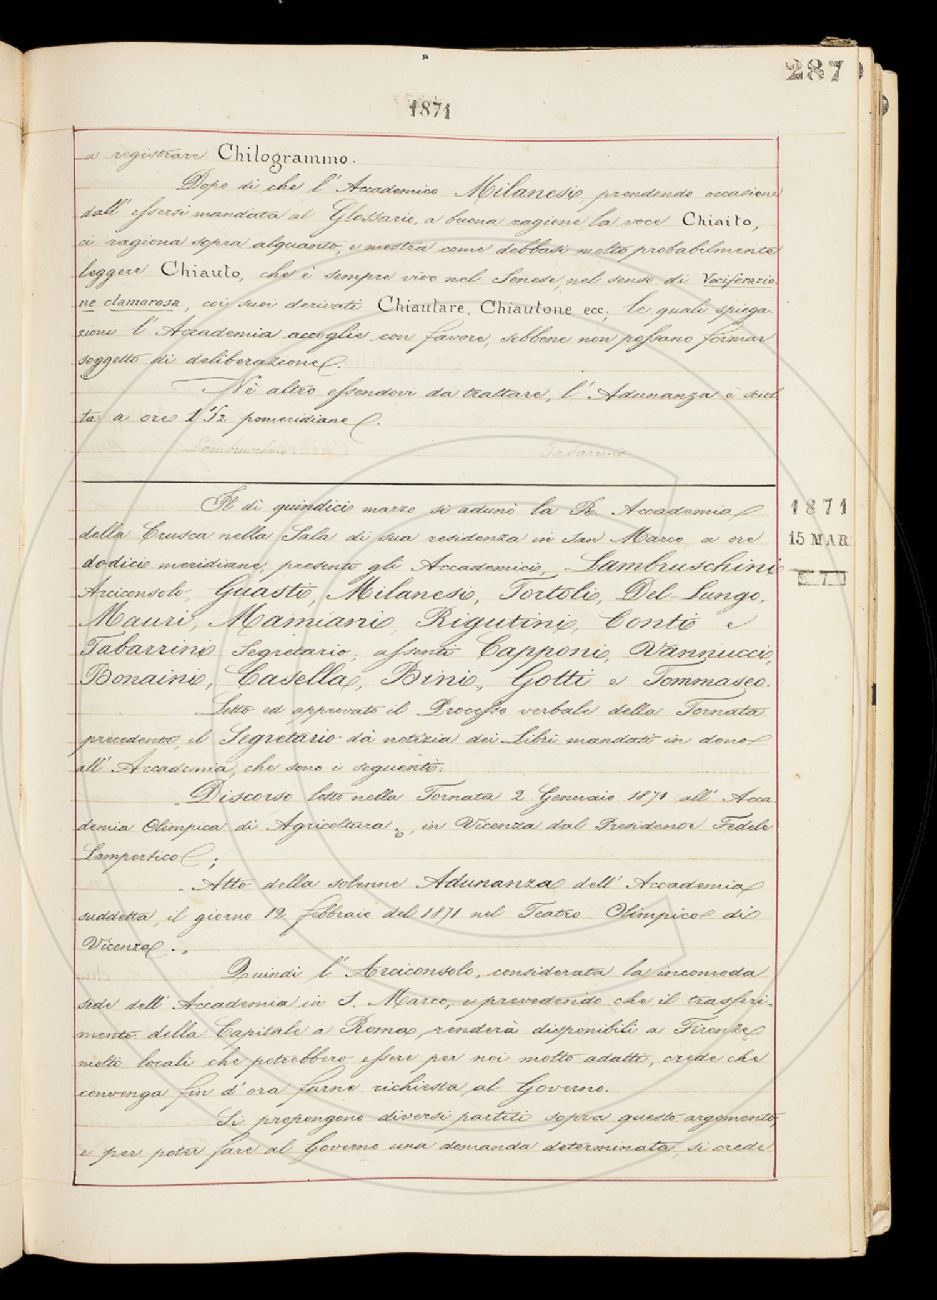 287
1871
a registrare Chilogrammo.
Dopo di che l' Accademico Milanesi, prendendo occasione
dall' essersi mandata al Glossario, a buona ragione la voce Chiaito,
ci ragiona sopra alquanto, e mostra come debbasi molto probabilmente
leggere Chiauto, che è sempre vivo nel Senese, nel senso di Vociferazio-
ne clamorosa, coi suoi derivati Chiautare, Chiautone ecc; le quali spiega-
zioni l' Accademia accoglie con favore, sebbene non possano formar
soggetto di deliberazione.
Nè altro essendovi da trattare, l' Adunanza è sciol
ta a ore 1 1/2 pomeridiane.
Lambruschini Tabarrini
Il dì quindici marzo si adunò la R. Accademia
della Crusca nella Sala di sua residenza in San Marco, a ore
dodici meridiane, presenti gli Accademici, Lambruschini
Arciconsolo, Guasti, Milanesi, Tortoli, Del Lungo,
Mauri, Mamiani, Rigutini, Conti e
Tabarrini Segretario; assenti Capponi, Vannucci,
Bonaini, Casella, Bini, Gotti e Tommaseo.
Letto ed approvato il Processo verbale della Tornata
precedente, il Segretario dà notizia dei Libri mandati in dono
all' Accademia, che sono i seguenti:
Discorso letto nella Tornata 2 Gennaio 1871 all' Acca
demia Olimpica di Agricoltura, in Vicenza dal Presidente Fedele
Lampertico;
Atto della solenne Adunanza dell' Accademia
suddetta, il giorno 12 febbraio del 1871 nel Teatro Olimpico di
Vicenza.
Quindi l' Arciconsolo, considerata la incomoda
sede dell' Accademia in S. Marco, e prevedendo che il trasferi-
mento della Capitale a Roma renderà disponibili a Firenze
molti locali che potrebbero essere per noi molto adatti, crede che
convenga fin d' ora farne richiesta al Governo.
Si propongono diversi partiti sopra questo argomento,
e per poter fare al Governo una domanda determinata, si crede
1871
15 MAR